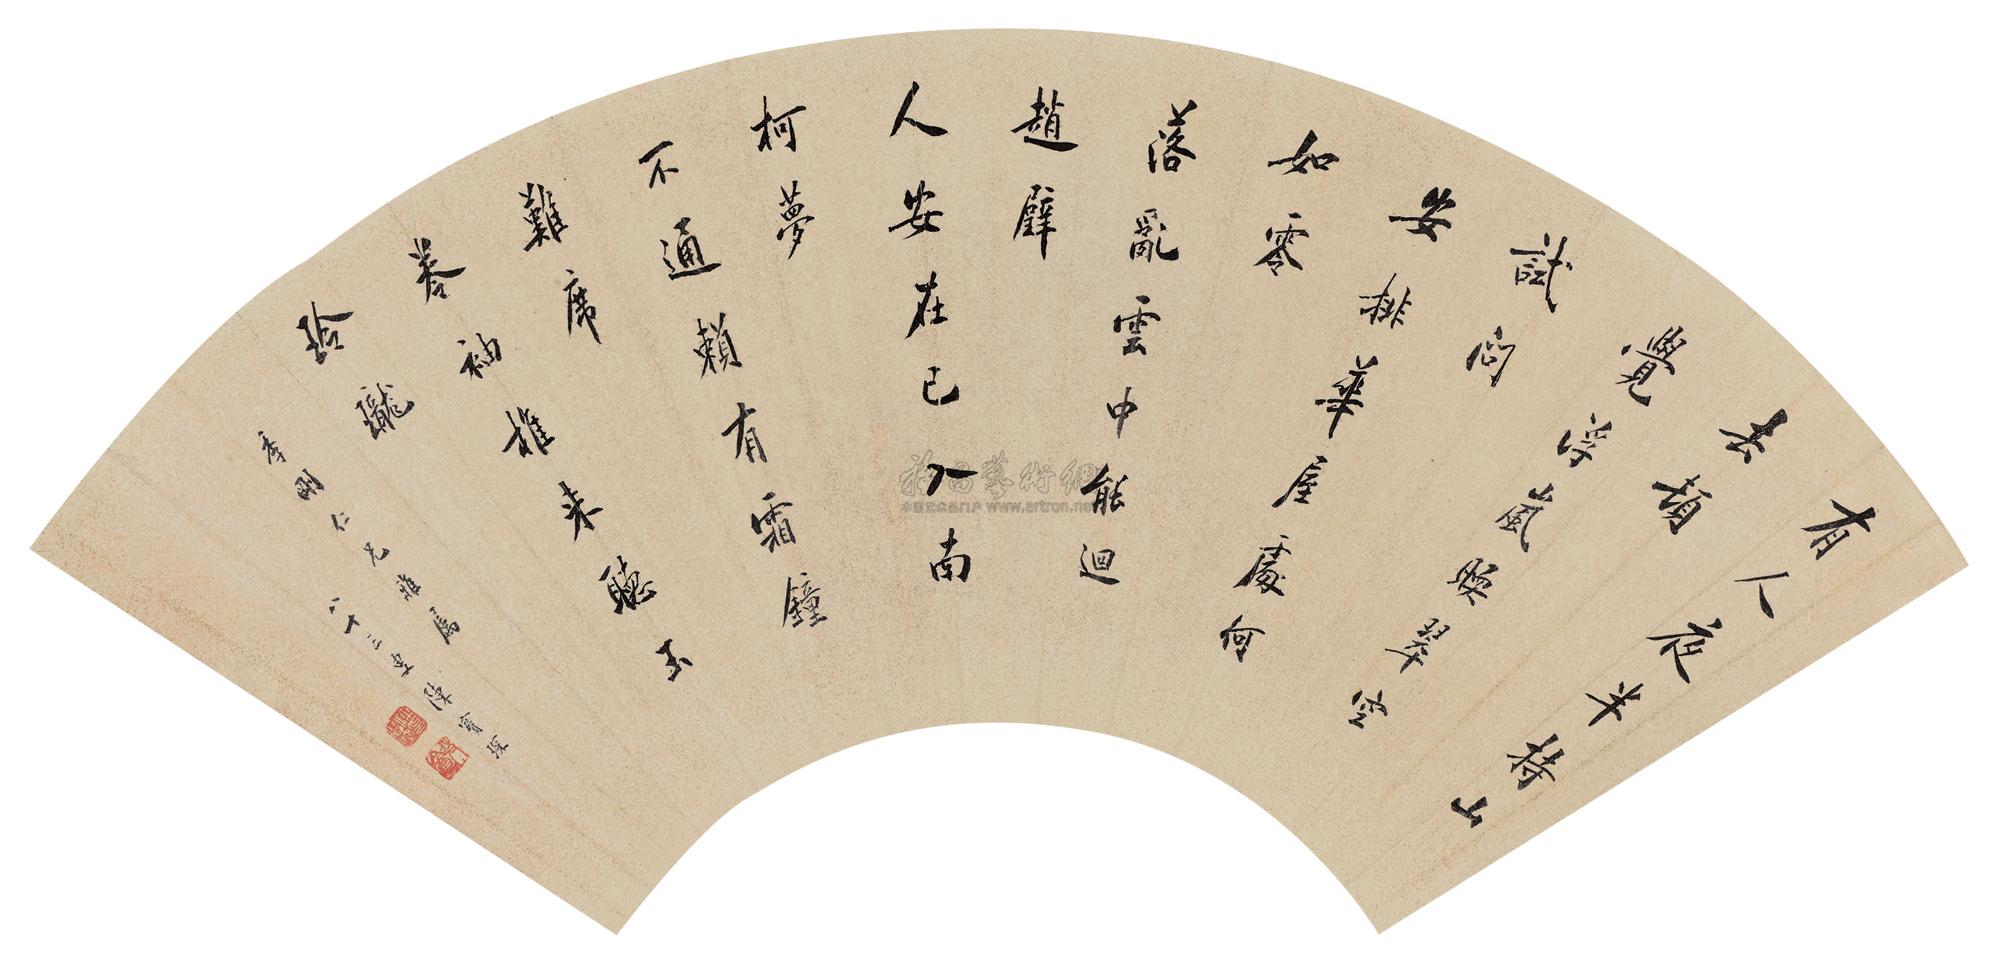 有人夜半持山
去頓
覺浮嵐暖翠空
試問
安排華屋處何
如零
落亂雲中能迴
趙璧
人安在已入南
柯夢
不通賴有霜鐘
難席
卷袖椎來聽玉
玲瓏
季剛仁兄雅屬
八十三叟陳寶琛
雅昌藝術網
中国艺术品门户 www.artron.net